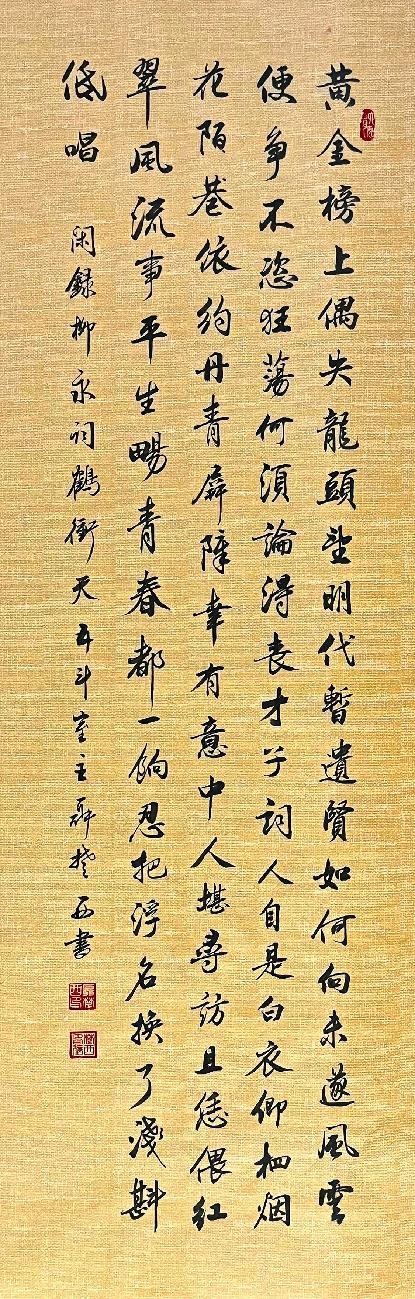 黄金榜上偶失龍頭望明代暫遺賢如何向未遂風雲
便争不恣狂蕩何須論得喪才子詞人自是白衣卿相烟
花陌巷依約丹青屏障幸有意中人堪尋訪且恁偎红
翠風流事平生暢青春都一餉忍把浮名換了淺斟
低唱
闲録柳永词鶴衝天五斗室主聶楚西書